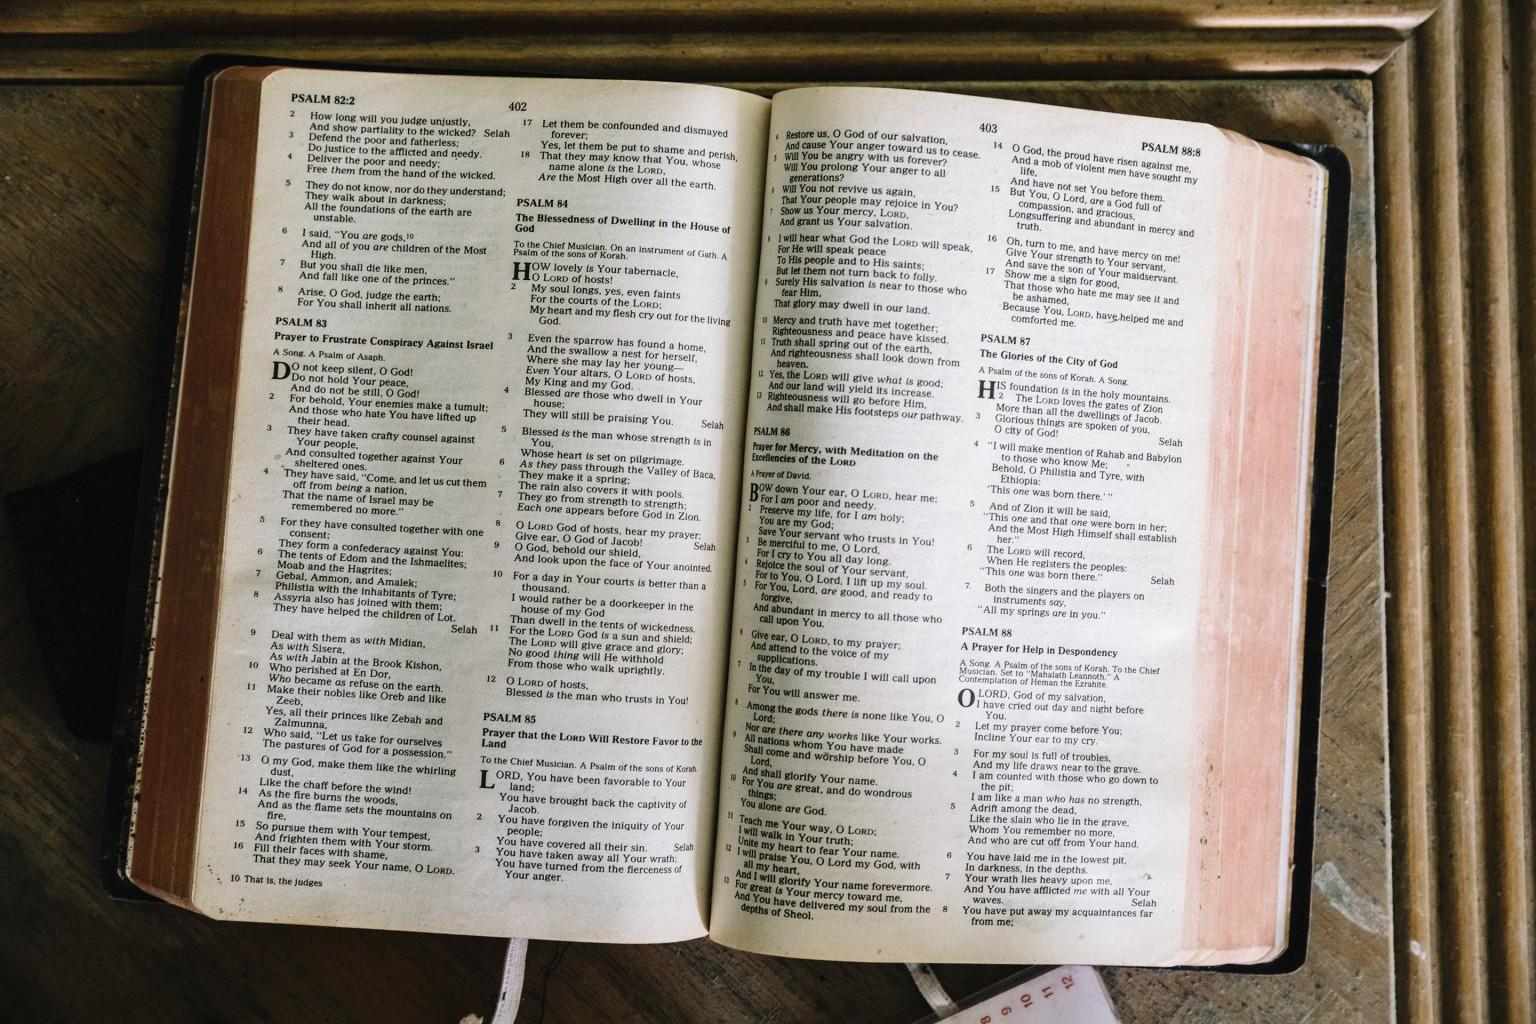 PSALM 82:2
402
2 How long will you judge unjustly,
And show partiality to the wicked? Selah
3 Defend the poor and fatherless;
Do justice to the afflicted and needy.
4 Deliver the poor and needy;
Free them from the hand of the wicked.
5 They do not know, nor do they understand;
They walk about in darkness;
All the foundations of the earth are
unstable.
6 I said, "You are gods,10
And all of you are children of the Most
High.
7 But you shall die like men,
And fall like one of the princes."
8 Arise, O God, judge the earth;
For You shall inherit all nations.
PSALM 83
Prayer to Frustrate Conspiracy Against Israel
A Song. A Psalm of Asaph.
DO not keep silent, O God!
Do not hold Your peace,
And do not be still, O God!
2 For behold, Your enemies make a tumult;
And those who hate You have lifted up
their head.
3 They have taken crafty counsel against
Your people,
And consulted together against Your
sheltered ones.
4 They have said, "Come, and let us cut them
off from being a nation,
That the name of Israel may be
remembered no more."
5 For they have consulted together with one
consent;
They form a confederacy against You:
6 The tents of Edom and the Ishmaelites;
Moab and the Hagrites;
7 Gebal, Ammon, and Amalek;
Philistia with the inhabitants of Tyre;
8 Assyria also has joined with them;
They have helped the children of Lot.
Selah
9 Deal with them as with Midian,
As with Sisera,
As with Jabin at the Brook Kishon,
10 Who perished at En Dor,
Who became as refuse on the earth.
11 Make their nobles like Oreb and like
Zeeb,
Yes, all their princes like Zebah and
Zalmunna,
12 Who said, "Let us take for ourselves
The pastures of God for a possession."
13 O my God, make them like the whirling
dust,
Like the chaff before the wind!
14 As the fire burns the woods,
And as the flame sets the mountains on
fire,
15 So pursue them with Your tempest,
And frighten them with Your storm.
16 Fill their faces with shame,
That they may seek Your name, O LORD.
10 That is, the judges
17 Let them be confounded and dismayed
forever;
Yes, let them be put to shame and perish,
18 That they may know that You, whose
name alone is the LORD,
Are the Most High over all the earth.
PSALM 84
The Blessedness of Dwelling in the House of
God
To the Chief Musician. On an instrument of Gath. A
Psalm of the sons of Korah.
HOW lovely is Your tabernacle,
O LORD of hosts!
2 My soul longs, yes, even faints
For the courts of the LORD;
My heart and my flesh cry out for the living
God.
3 Even the sparrow has found a home,
And the swallow a nest for herself,
Where she may lay her young—
Even Your altars, O LORD of hosts,
My King and my God.
4 Blessed are those who dwell in Your
house;
They will still be praising You. Selah
5 Blessed is the man whose strength is in
You,
Whose heart is set on pilgrimage.
6 As they pass through the Valley of Baca,
They make it a spring;
The rain also covers it with pools.
7 They go from strength to strength;
Each one appears before God in Zion.
8 O LORD God of hosts, hear my prayer;
Give ear, O God of Jacob! Selah
9 O God, behold our shield,
And look upon the face of Your anointed.
10 For a day in Your courts is better than a
thousand.
I would rather be a doorkeeper in the
house of my God
Than dwell in the tents of wickedness.
11 For the LORD God is a sun and shield;
The LORD will give grace and glory;
No good thing will He withhold
From those who walk uprightly.
12 O LORD of hosts,
Blessed is the man who trusts in You!
PSALM 85
Prayer that the LORD Will Restore Favor to the
Land
To the Chief Musician. A Psalm of the sons of Korah.
LORD, You have been favorable to Your
land;
You have brought back the captivity of
Jacob.
2 You have forgiven the iniquity of Your
people;
You have covered all their sin. Selah
3 You have taken away all Your wrath;
You have turned from the fierceness of
Your anger.
403
PSALM 88:8
4 Restore us, O God of our salvation,
And cause Your anger toward us to cease.
5 Will You be angry with us forever?
Will You prolong Your anger to all
generations?
6 Will You not revive us again,
That Your people may rejoice in You?
7 Show us Your mercy, LORD,
And grant us Your salvation.
8 I will hear what God the LORD will speak,
For He will speak peace
To His people and to His saints;
But let them not turn back to folly.
9 Surely His salvation is near to those who
fear Him,
That glory may dwell in our land.
10 Mercy and truth have met together;
Righteousness and peace have kissed.
11 Truth shall spring out of the earth,
And righteousness shall look down from
heaven.
12 Yes, the LORD will give what is good;
And our land will yield its increase.
13 Righteousness will go before Him,
And shall make His footsteps our pathway.
PSALM 86
Prayer for Mercy, with Meditation on the
Excellencies of the LORD
A Prayer of David.
BOW down Your ear, O LORD, hear me;
For I am poor and needy.
2 Preserve my life, for I am holy;
You are my God;
Save Your servant who trusts in You!
3 Be merciful to me, O Lord,
For I cry to You all day long.
4 Rejoice the soul of Your servant,
For to You, O Lord, I lift up my soul.
5 For You, Lord, are good, and ready to
forgive,
And abundant in mercy to all those who
call upon You.
6 Give ear, O LORD, to my prayer;
And attend to the voice of my
supplications.
7 In the day of my trouble I will call upon
You,
For You will answer me.
8 Among the gods there is none like You, O
Lord;
Nor are there any works like Your works.
9 All nations whom You have made
Shall come and worship before You, O
Lord,
And shall glorify Your name.
10 For You are great, and do wondrous
things;
You alone are God.
11 Teach me Your way, O LORD;
I will walk in Your truth;
Unite my heart to fear Your name.
12 I will praise You, O Lord my God, with
all my heart,
And I will glorify Your name forevermore.
13 For great is Your mercy toward me,
And You have delivered my soul from the
depths of Sheol.
14 O God, the proud have risen against me,
And a mob of violent men have sought my
life,
And have not set You before them.
15 But You, O Lord, are a God full of
compassion, and gracious,
Longsuffering and abundant in mercy and
truth.
16 Oh, turn to me, and have mercy on me!
Give Your strength to Your servant,
And save the son of Your maidservant.
17 Show me a sign for good,
That those who hate me may see it and
be ashamed,
Because You, LORD, have helped me and
comforted me.
PSALM 87
The Glories of the City of God
A Psalm of the sons of Korah. A Song.
HIS foundation is in the holy mountains.
2 The LORD loves the gates of Zion
More than all the dwellings of Jacob.
3 Glorious things are spoken of you,
O city of God! Selah
4 "I will make mention of Rahab and Babylon
to those who know Me;
Behold, O Philistia and Tyre, with
Ethiopia:
'This one was born there.' "
5 And of Zion it will be said,
"This one and that one were born in her;
And the Most High Himself shall establish
her."
6 The LORD will record,
When He registers the peoples:
"This one was born there." Selah
7 Both the singers and the players on
instruments say,
"All my springs are in you."
PSALM 88
A Prayer for Help in Despondency
A Song. A Psalm of the sons of Korah. To the Chief
Musician. Set to "Mahalath Leannoth." A
Contemplation of Heman the Ezrahite.
O LORD, God of my salvation,
I have cried out day and night before
You.
2 Let my prayer come before You;
Incline Your ear to my cry.
3 For my soul is full of troubles,
And my life draws near to the grave.
4 I am counted with those who go down to
the pit;
I am like a man who has no strength,
5 Adrift among the dead,
Like the slain who lie in the grave,
Whom You remember no more,
And who are cut off from Your hand.
6 You have laid me in the lowest pit,
In darkness, in the depths.
7 Your wrath lies heavy upon me,
And You have afflicted me with all Your
waves. Selah
8 You have put away my acquaintances far
from me;
8 9 10 11 12